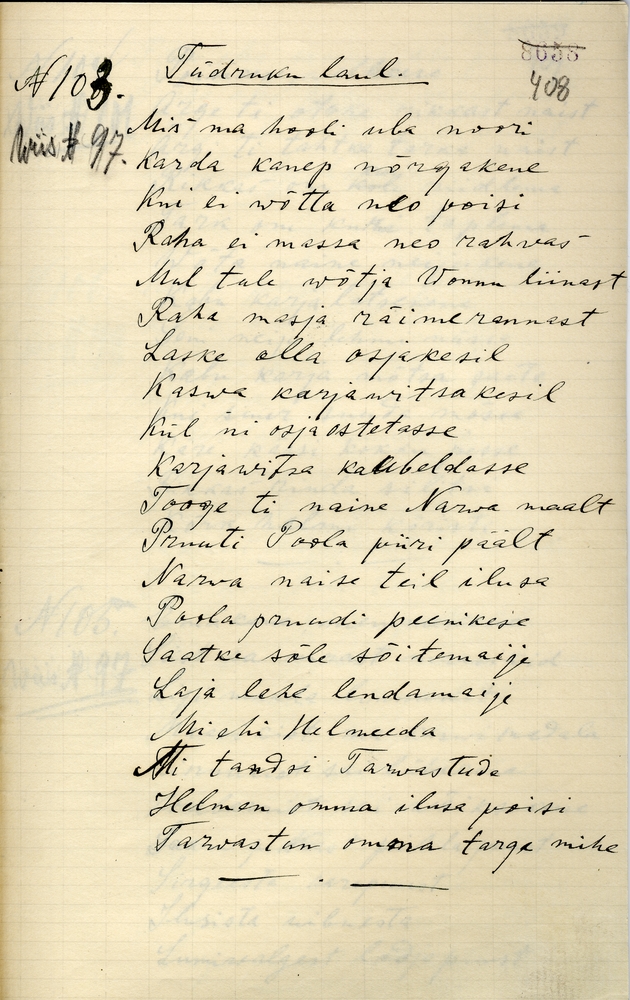 8638
408
N 103.
Tüdruku laul.
Wiis # 97.
Mis ma hooli uba noori
Karda kanep nõrgakene
Kui ei wõtta neo poisi
Raha ei massa neo rahwas
Mul tule wõtja Wonnu liinast
Raha masja räimerannast
Laske olla osjakesil
Kaswa karjawitsakesil
Kül ni osja ostetasse
Karjawitsa kaubeldasse
Tooge ti naine Narwa maalt
Pruuti Poola piiri päält
Narwa naise teil ilusa
Poola pruudi peenikese
Saatke sõle sõitemaije
Laja lehe lendamaije
Mi ehi Helmeeda
Mi tandsi Tarwastuda
Helmen omma ilusa poisi
Tarwastun omma targa mihe